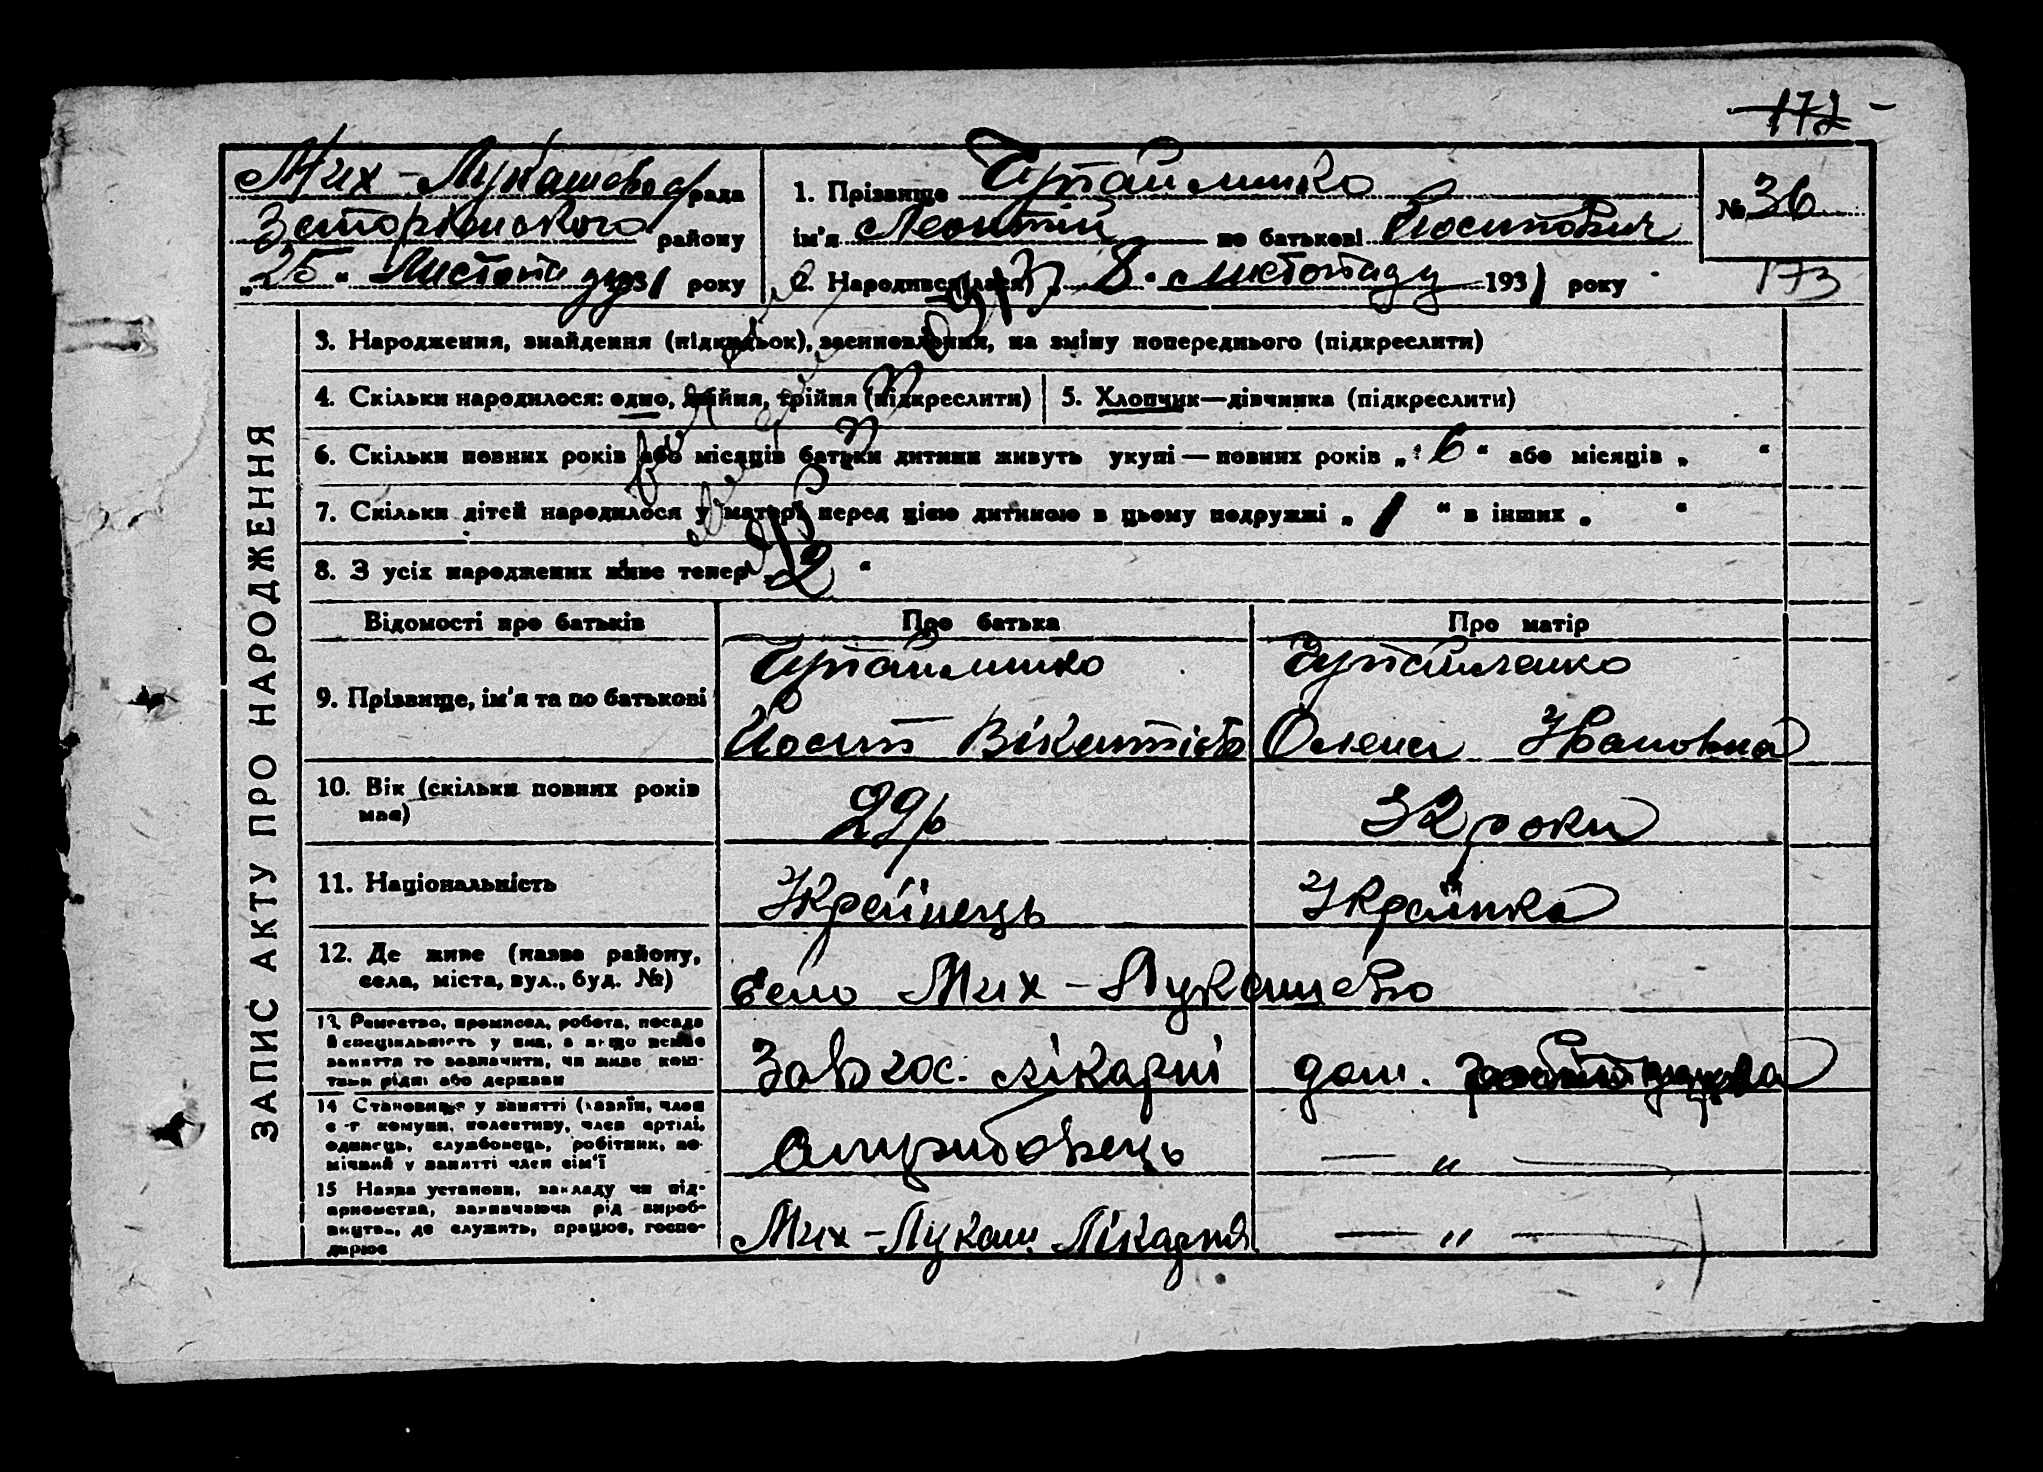 172 -
Мих-Лукашово рада
району
„25" Листопаду 1931 року
1. Прізвище
ім'я Леонтій по батькові Йосипович
2. Народився(лася) „8" листопаду 1931 року
№ 36
173
ЗАПИС АКТУ ПРО НАРОДЖЕННЯ
3. Народження, знайдення (підкидьок), всиновлення, на зміну попереднього (підкреслити)
4. Скільки народилося: одно, двійня, трійня (підкреслити)
5. Хлопчик—дівчинка (підкреслити)
6. Скільки повних років або місяців батьки дитини живуть укупі — повних років „6" або місяців „ "
7. Скільки дітей народилося у матері перед цією дитиною в цьому подружжі „1" в інших „ "
8. З усіх народжених живе тепер „2"
Відомості про батьків Про батька Про матір
9. Прізвище, ім'я та по батькові
Йосип Вікентієв Олена Івановна
10. Вік (скільки повних років має)
29 р 32 роки
11. Національність
Украінець Украінка
12. Де живе (назва району, села, міста, вул., буд. №)
село Мих-Лукашево
13. Ремество, промисел, робота, посада й спеціяльність у них, а якщо немає заняття то зазначити, чи живе коштами рідні або держави
Завгос. лікарні дом.
14. Становище у занятті (хазяїн, член с-г комуни, колективу, член артілі, одинець, службовець, робітник, помічний у занятті член сім'ї
— " —
15. Назва установи, закладу чи підприємства, зазначаючи рід виробництва, де служить, працює, господарює
Мих-Лукаш. Лікарня — " —